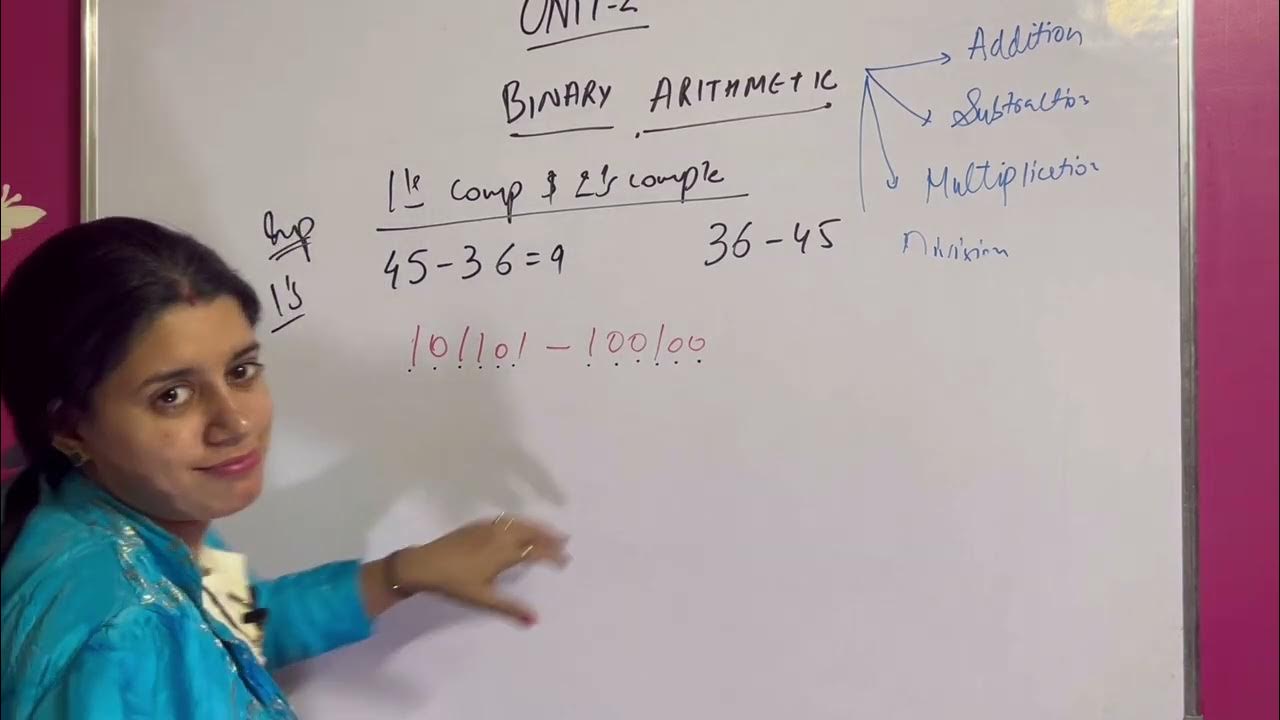 UNIT-2
BINARY ARITHMETIC
Addition
Subtraction
Multiplication
Division
1's comp & 2's comple
Imp
45-36=9
36-45
1's
101101 - 100100